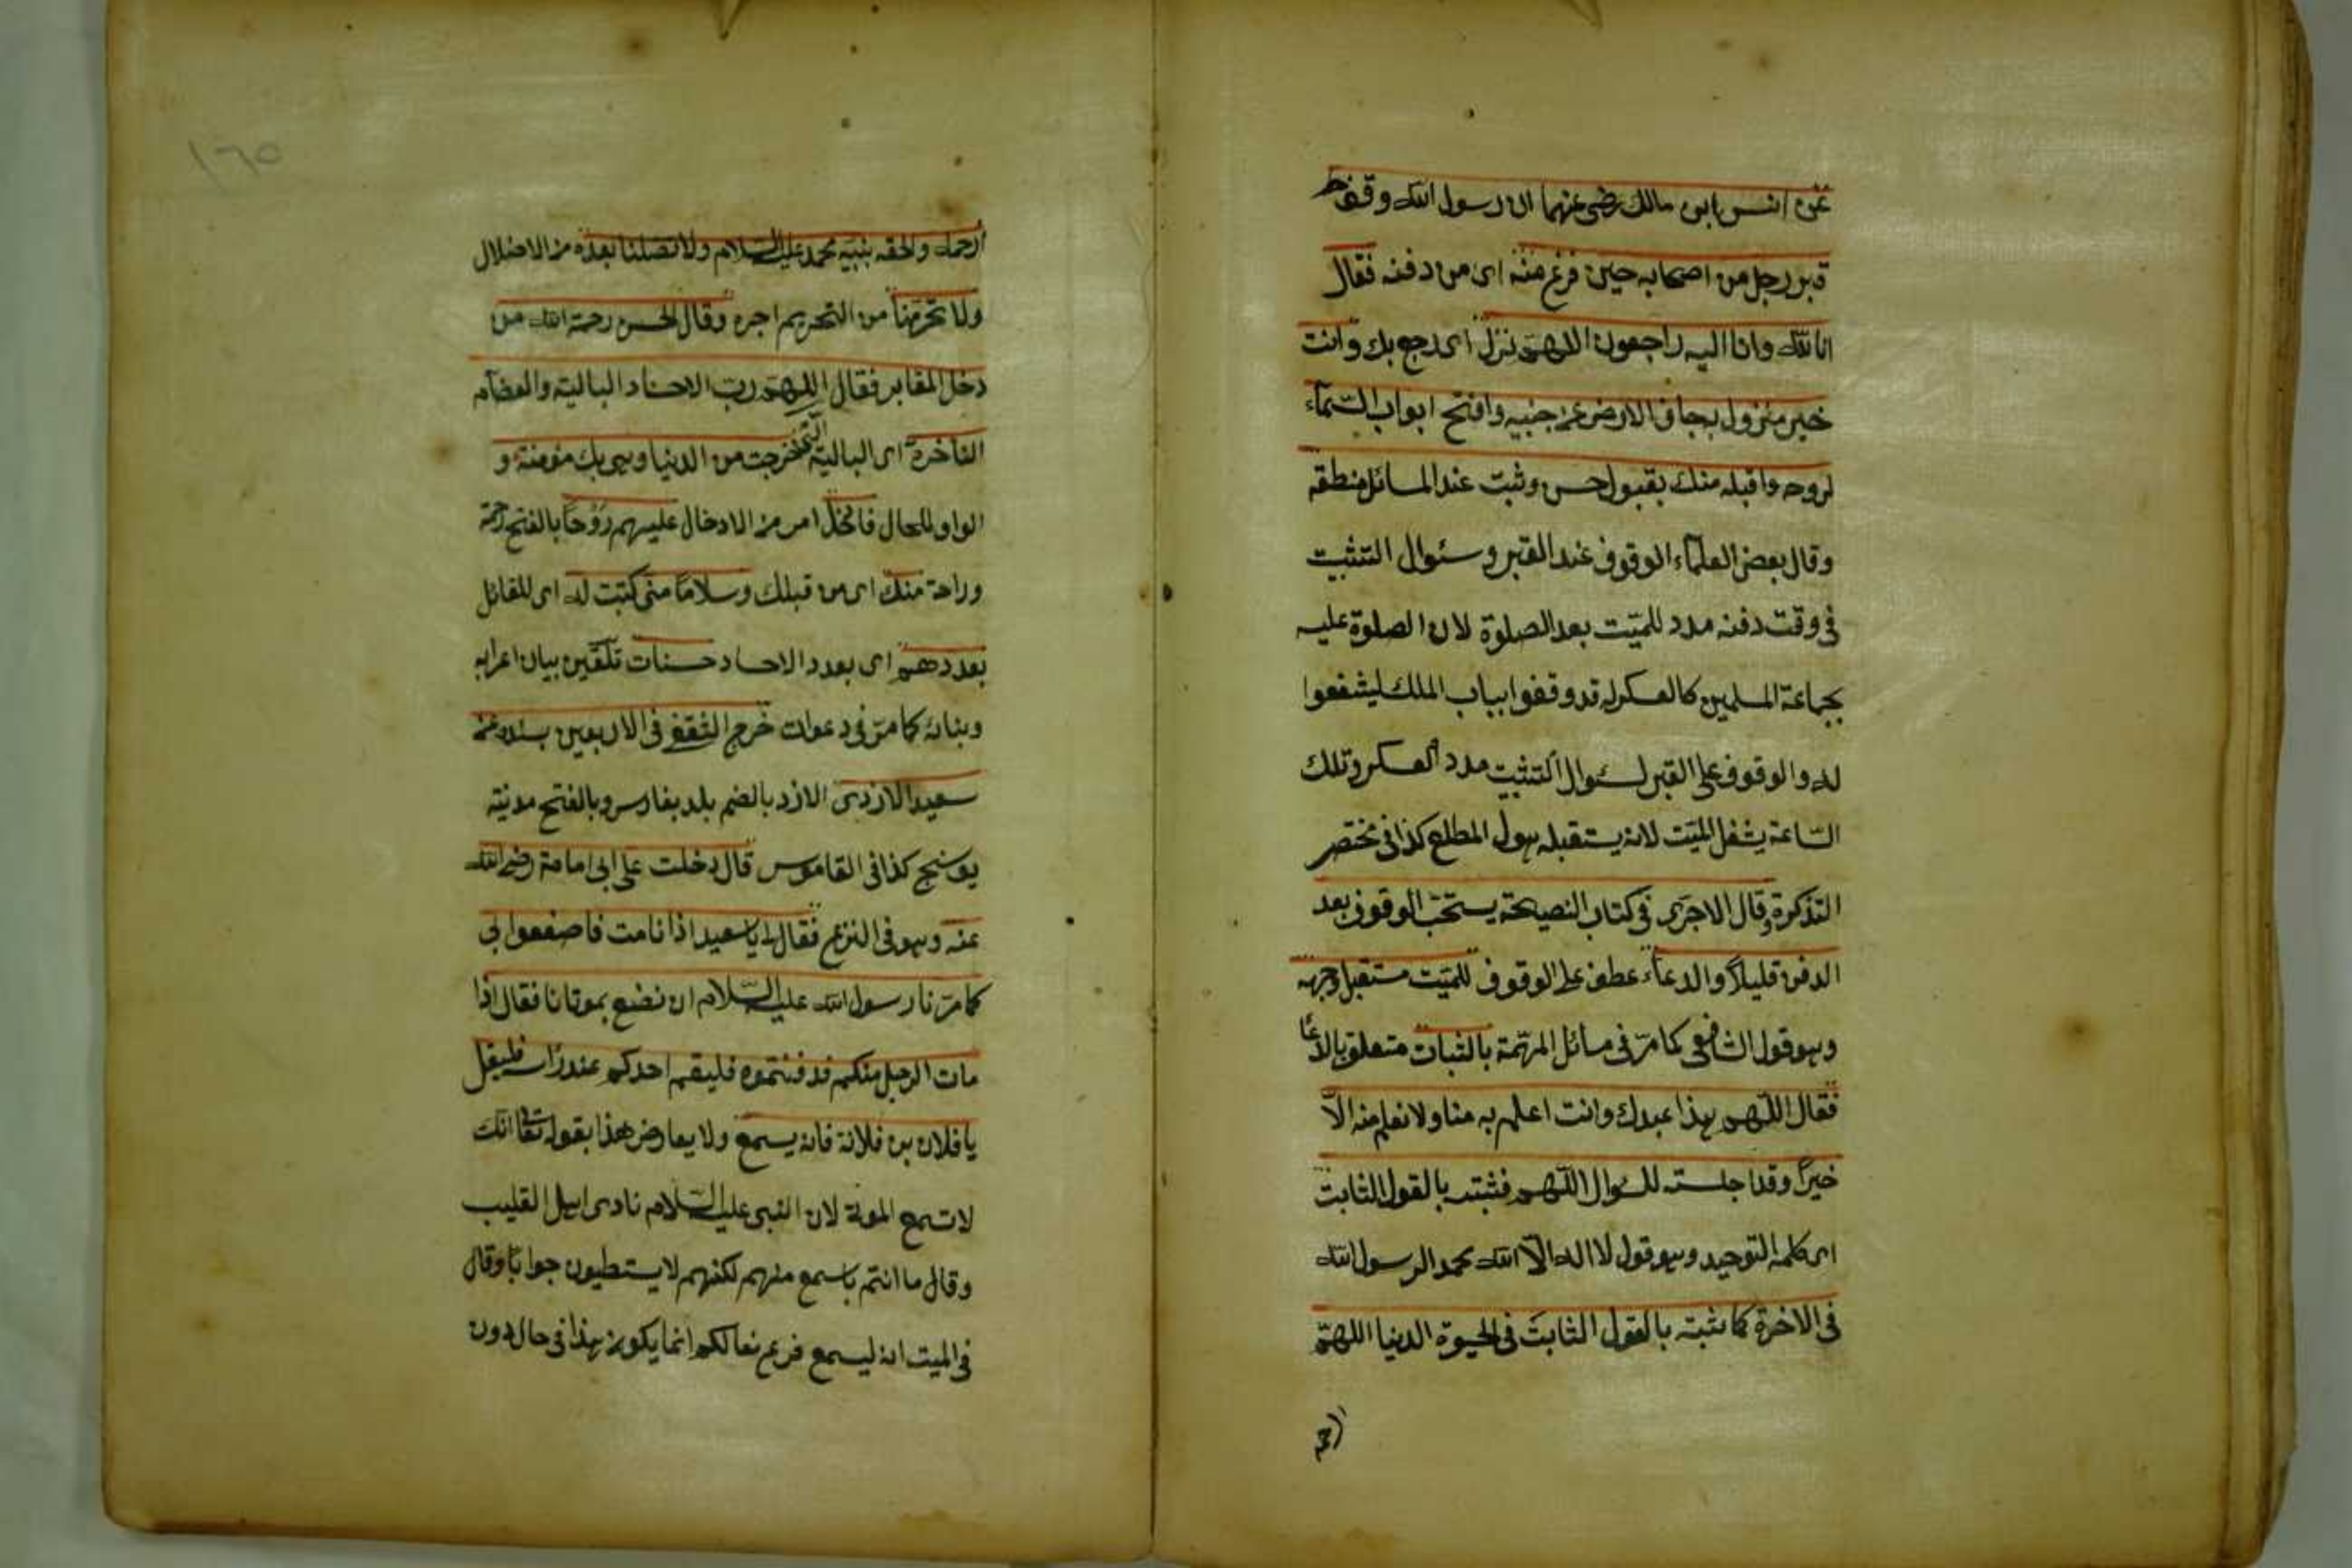 عن انس ابن مالك رضى عنهما ان رسول الله وقف على
قبر رجل من اصحابه حين فرغ منه اى من دفنه فقال
انا لله وانا اليه راجعون اللهم نزل اى رجع بك وانت
خير منزول به جاف الارض عن جنبيه وافتح ابواب السماء
لروحه واقبله منك بقبول حسن وثبت عند المسائل منطقه
وقال بعض العلماء الوقوف عند القبر وسئوال التثبيت
فى وقت دفنه مدد للميت بعد الصلوة لان الصلوة عليه
بجماعة المسلمين كالعسكر له قد وقفوا بباب الملك ليشفعوا
له والوقوف على القبر لسئوال التثبيت مدد العسكر وتلك
الساعة يشغل الميت لانه يستقبله هول المطلع كذا فى مختصر
التذكرة وقال الاجرى فى كتاب النصيحة يستحب الوقوف بعد
الدفن قليلاً والدعاء عطف على الوقوف للميت مستقبل وجهه
وهو قول الشافعى كما مر فى مسائل المهمة بالثبات متعلق بالدعا
فقال اللهم هذا عبدك وانت اعلم به منا ولا نعلم منه الاّ
خيراً وقد اجلسته للسوال اللهم فثبته بالقول الثابت
اى كلمة التوحيد وهو قول لا اله الاّ الله محمد الرسول الله
فى الاخرة كما ثبته بالقول الثابت فى الحيوة الدنيا اللهمّ
ارحمه والحقه بنبيه محمد عليه السلام ولا تضلنا بعده من الاضلال
ولا تحرمنا من التحريم اجره وقال الحسن رحمة الله من
دخل المقابر فقال اللهم رب الاجساد البالية والعضام
الناخرة اى البالية التى خرجت من الدنيا وهى بك مؤمنة و
الواو للحال فادخل امر من الادخال عليهم رَوْحاً بالفتح رحمة
وراحة منك اى من قبلك وسلاماً منى كتبت له اى للقائل
بعددهم اى بعدد الاجساد حسنات تلقين بيان اعرابه
وبنائه كما مر فى دعوات خرج الثقفى فى الاربعين بسنده عن
سعيد الازدى الازد بالضم بلد بفارس وبالفتح مدنية
بوسنج كذا فى القاموس قال دخلت على ابى امامة رضى الله
عنه وهو فى النزع فقال يا سعيد اذا انا مت فاصنعوا بى
كما امرنا رسول الله عليه السلام ان نصنع بموتانا فقال اذا
مات الرجل منكم فدفنتموه فليقم احدكم عند رأسه فليقل
يا فلان بن فلانة فانه يسمع ولا يعارض هذا بقوله تعالى انك
لا تسمع الموتى لان النبى عليه السلام نادى اهل القليب
وقال ما انتم باسمع منهم لكنهم لا يستطيعون جواباً وقال
فى الميت انه ليسمع قرع نعالكم انما يكون هذا فى حال دون